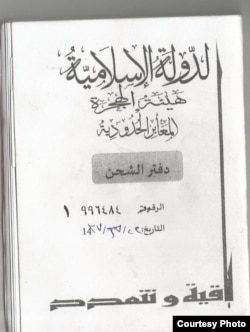 الدولة الإسلامية
هيئة الهجرة
المعابر الحدودية
دفتر الشحن
الرقم ٩٩٦٤٨٤ ١
التاريخ:
باقية و تتمدد
Courtesy Photo